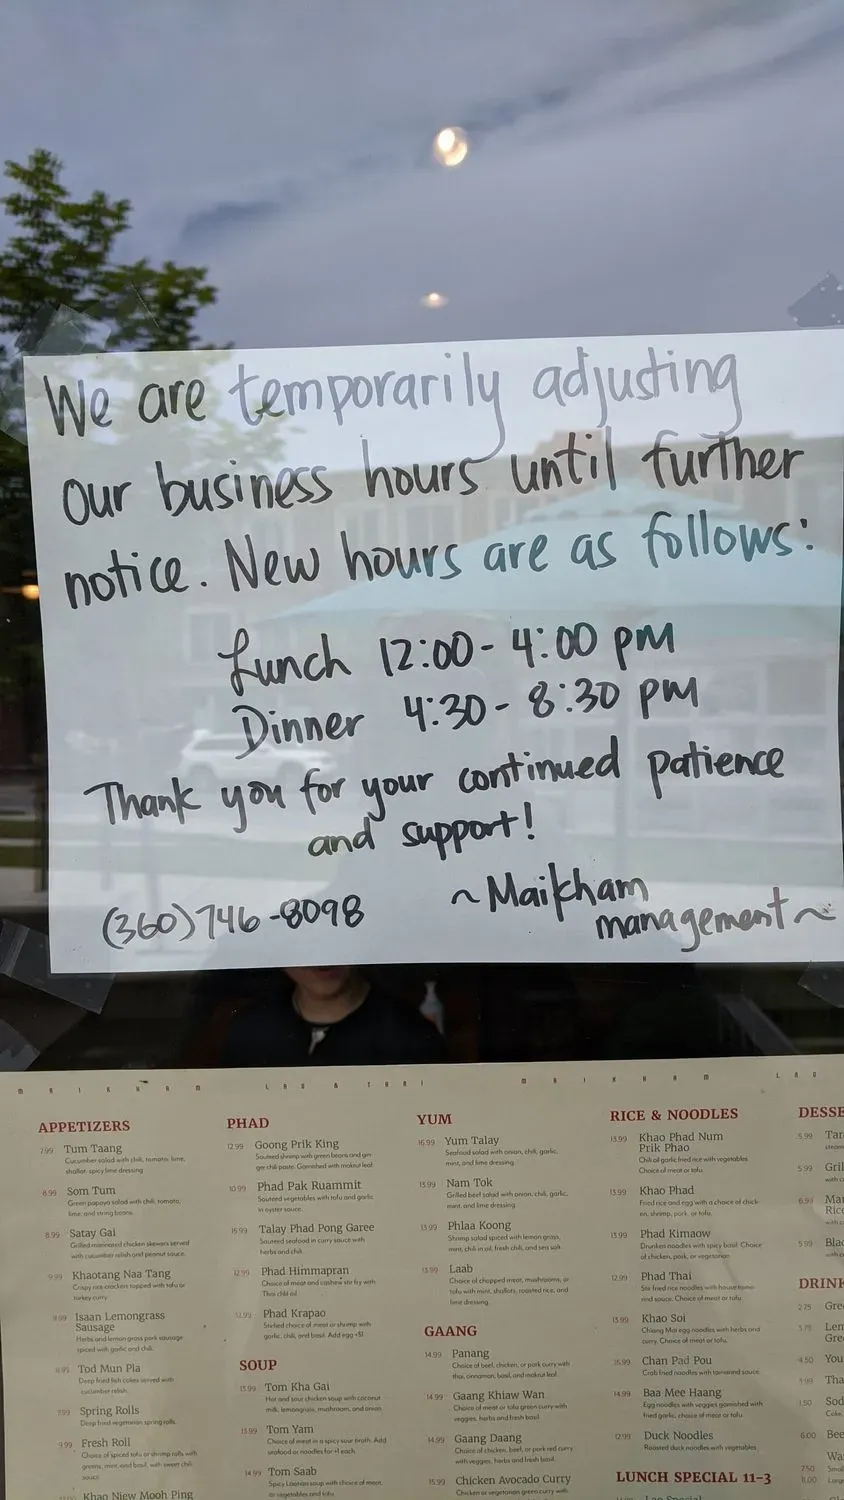 We are temporarily adjusting
our business hours until further
notice. New hours are as follows:
Lunch 12:00-4:00 pm
Dinner 4:30-8:30 pm
Thank you for your continued patience
and support!
(360)746-8098
~Maikham
management~
MAIKHAM LAO & THAI MAIKHAM LAO
APPETIZERS
7.99 Tum Taang
Cucumber salad with chili, tomato, lime,
shallot, spicy lime dressing
8.99 Som Tum
Green papaya salad with chili, tomato,
lime, and string beans.
8.99 Satay Gai
Grilled marinated chicken skewers served
with cucumber relish and peanut sauce.
9.99 Khaotang Naa Tang
Crispy rice crackers topped with tofu or
turkey curry
Isaan Lemongrass
Sausage
Herbs and lemon grass pork sausage
spiced with garlic and chili.
Tod Mun Pla
Deep fried fish cakes served with
cucumber relish.
7.99 Spring Rolls
Deep fried vegetarian spring rolls.
9.99 Fresh Roll
Choice of spiced tofu or shrimp rolls with
greens, mint, and basil, with sweet chili
sauce.
Khao Niew Mooh Ping
PHAD
12.99 Goong Prik King
Sauteed shrimp with green beans and gin-
ger chili paste. Garnished with makrut leaf.
10.99 Phad Pak Ruammit
Sauteed vegetables with tofu and garlic
in oyster sauce.
15.99 Talay Phad Pong Garee
Sauteed seafood in curry sauce with
herbs and chili.
12.99 Phad Himmapran
Choice of meat and cashew stir fry with
Thai chili oil
12.99 Phad Krapao
Stir-fried choice of meat or shrimp with
garlic, chili, and basil. Add egg +$1
SOUP
13.99 Tom Kha Gai
Hot and sour chicken soup with coconut
milk, lemongrass, mushroom, and onion
13.99 Tom Yam
Choice of meat in a spicy sour broth. Add
seafood or noodles for +1 each
14.99 Tom Saab
Spicy Laotian soup with choice of meat,
or vegetables and tofu.
YUM
16.99 Yum Talay
Seafood salad with onion, chili, garlic,
mint, and lime dressing.
13.99 Nam Tok
Grilled beef salad with onion, chili, garlic,
mint, and lime dressing
13.99 Phlaa Koong
Shrimp salad spiced with lemon grass,
mint, chili in oil, fresh chili, and sea salt.
13.99 Laab
Choice of chopped meat, mushrooms, or
tofu with mint, shallots, roasted rice, and
lime dressing.
GAANG
14.99 Panang
Choice of beef, chicken, or pork curry with
thai, cinnamon, basil, and makrut leaf.
14.99 Gaang Khiaw Wan
Choice of meat or tofu green curry with
veggies, herbs and fresh basil.
14.99 Gaang Daang
Choice of chicken, beef, or pork red curry
with veggies, herbs and fresh basil.
15.99 Chicken Avocado Curry
Chicken or vegetarian green curry with
RICE & NOODLES
13.99 Khao Phad Num
Prik Phao
Chili oil garlic fried rice with vegetables.
Choice of meat or tofu.
13.99 Khao Phad
Fried rice and egg with a choice of chick-
en, shrimp, pork, or tofu.
13.99 Phad Kimaow
Drunken noodles with spicy basil. Choice
of chicken, pork, or vegetarian.
12.99 Phad Thai
Stir fried rice noodles with house tama-
rind sauce. Choice of meat or tofu.
13.99 Khao Soi
Chiang Mai egg noodles with herbs and
curry. Choice of meat or tofu.
15.99 Chan Pad Pou
Crab fried noodles with tamarind sauce.
14.99 Baa Mee Haang
Egg noodles with veggies garnished with
fried garlic, choice of meat or tofu.
12.99 Duck Noodles
Roasted duck noodles with vegetables
LUNCH SPECIAL 11-3
Lao Special
DESSE
5.99 Tar
5.99 Gril
6.99 Ma
Ric
5.99 Blac
DRIN
2.75 Gre
3.75 Len
Gre
4.50 You
Tha
1.50 Sod
Coke
6.00 Bee
Wa
7.50
11.00